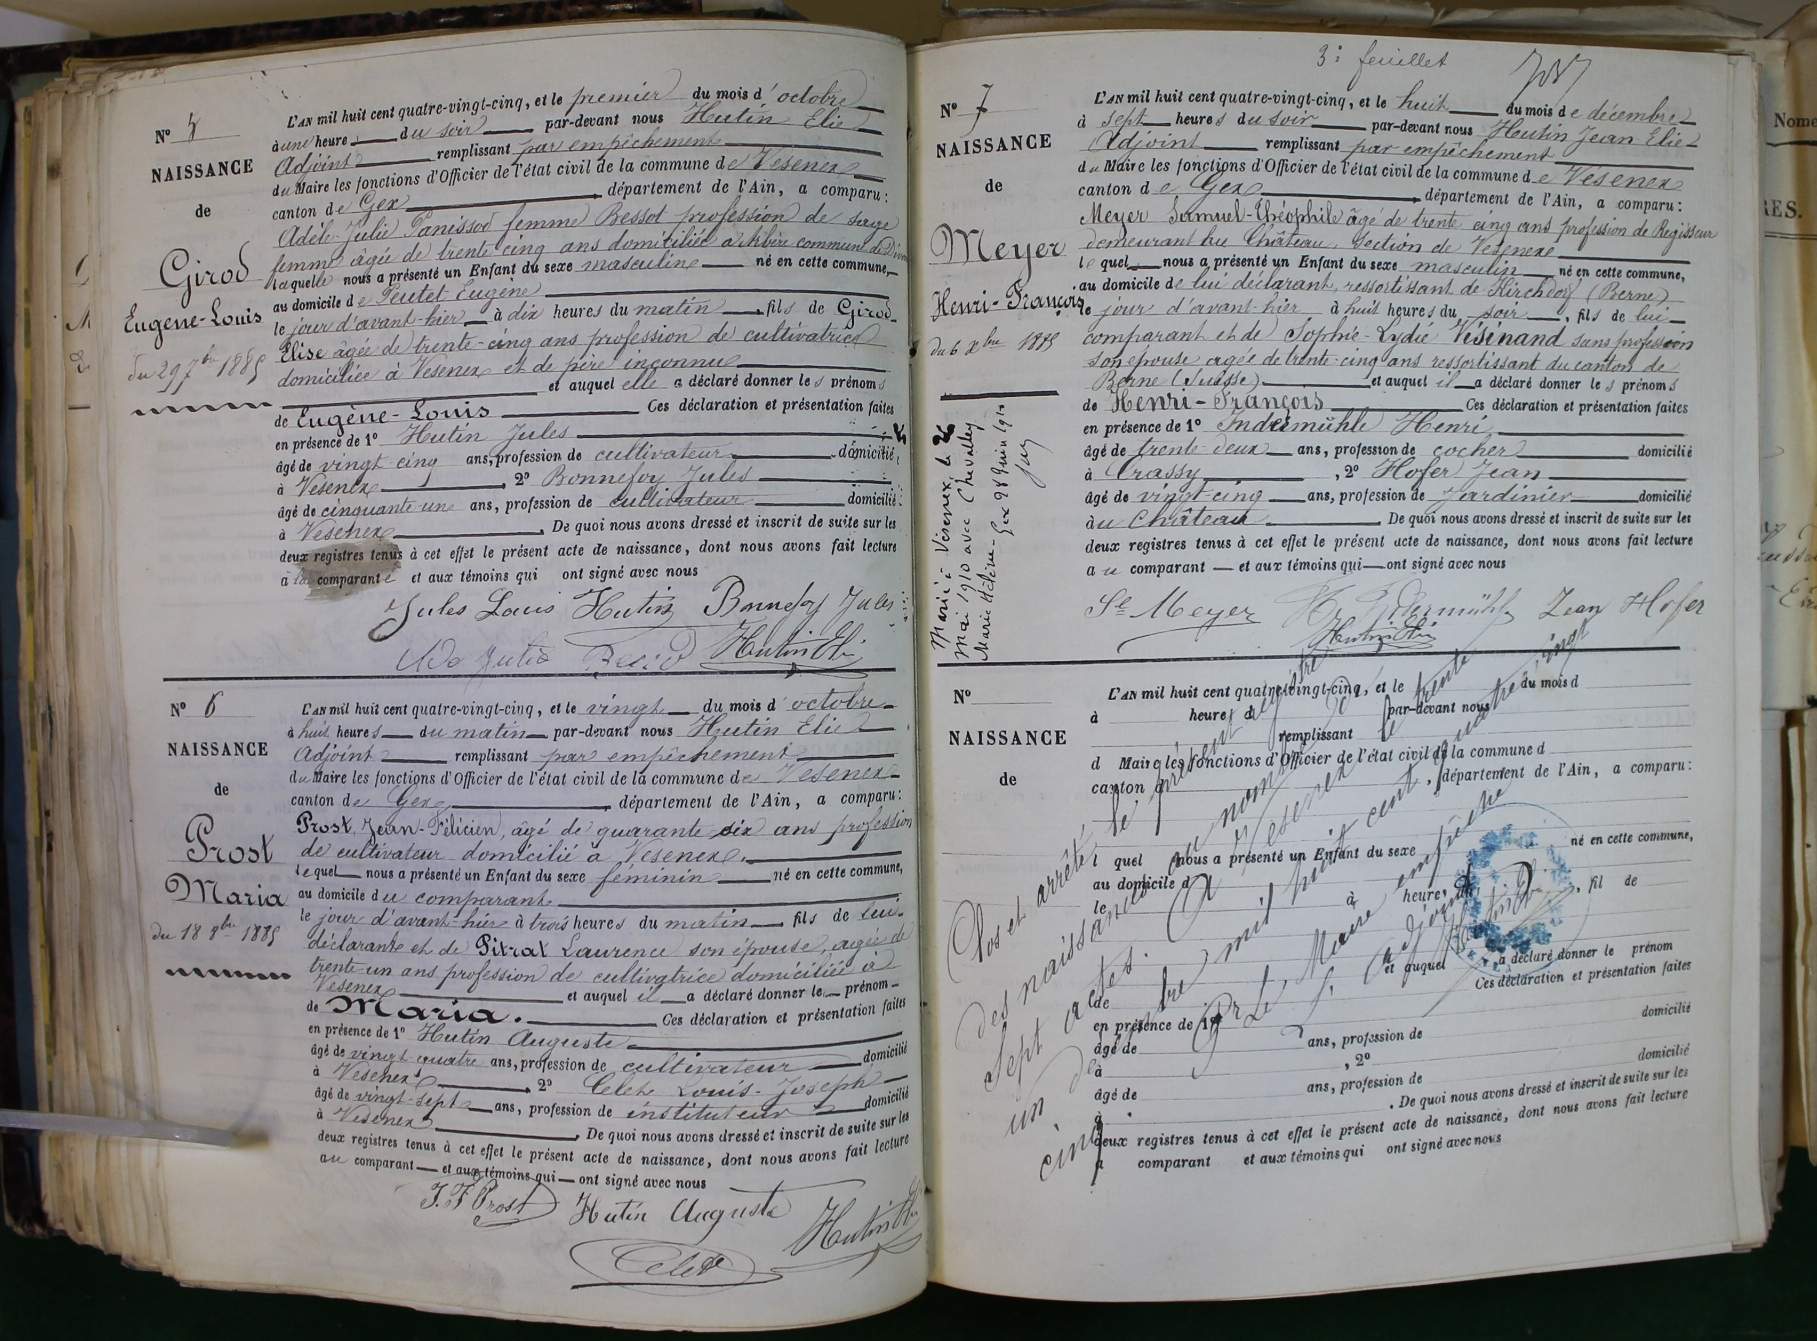 N° 5
NAISSANCE
de
Girod
Eugène-Louis
du 29 7bre 1885
L'AN mil huit cent quatre-vingt-cinq, et le premier du mois d'octobre
à une heure du soir par-devant nous Hutin Elie
Adjoint remplissant par empêchement
du Maire les fonctions d'Officier de l'état civil de la commune de Vesenex
canton de Gex département de l'Ain, a comparu:
Adèle-Julie Panissod femme Bessot profession de sage
femme âgée de trente cinq ans domiciliée à commune de
laquelle nous a présenté un Enfant du sexe masculin né en cette commune,
au domicile de Peutet Eugène
le jour d'avant-hier à dix heures du matin fils de Girod
Elise âgée de trente-cinq ans profession de cultivatrice
domiciliée à Vesenex et de père inconnu
et auquel elle a déclaré donner les prénoms
de Eugène-Louis Ces déclaration et présentation faites
en présence de 1° Hutin Jules
âgé de vingt cinq ans, profession de cultivateur domicilié
à Vesenex, 2° Bonnefoy Jules
âgé de cinquante-un ans, profession de cultivateur domicilié
à Vesenex. De quoi nous avons dressé et inscrit de suite sur les
deux registres tenus à cet effet le présent acte de naissance, dont nous avons fait lecture
à la comparante et aux témoins qui ont signé avec nous
Jules Louis Hutin Bonnefoy Jules
Julie Hutin Elie
N° 6
NAISSANCE
de
Prost
Maria
du 18 8bre 1885
L'AN mil huit cent quatre-vingt-cinq, et le vingt du mois d'octobre
à huit heures du matin par-devant nous Hutin Elie
Adjoint remplissant par empêchement
du Maire les fonctions d'Officier de l'état civil de la commune de Vesenex
canton de Gex département de l'Ain, a comparu:
Prost, Jean-Félicien, âgé de quarante six ans profession
de cultivateur domicilié à Vesenex.
lequel nous a présenté un Enfant du sexe féminin né en cette commune,
au domicile du comparant
le jour d'avant-hier à trois heures du matin fils de lui
déclarant et de Pitrat Laurence son épouse, âgée de
trente-un ans profession de cultivatrice domiciliée à
Vesenex et auquel il a déclaré donner le prénom
de Maria. Ces déclaration et présentation faites
en présence de 1° Hutin Auguste
âgé de vingt quatre ans, profession de cultivateur domicilié
à Vesenex, 2° Louis-Joseph
âgé de vingt-sept ans, profession de instituteur domicilié
à Vesenex. De quoi nous avons dressé et inscrit de suite sur les
deux registres tenus à cet effet le présent acte de naissance, dont nous avons fait lecture
au comparant et aux témoins qui ont signé avec nous
J. F Prost Hutin Auguste Hutin Elie
3e feuillet
N° 7
NAISSANCE
de
Meyer
Henri-François
du 6 Xbre 1885
Marié à Vésenex, le 26
Mai 1910 avec Chevalley
Marie Hélène - Gex 28 Juin 1910
L'AN mil huit cent quatre-vingt-cinq, et le huit du mois de décembre
à sept heures du soir par-devant nous Hutin Jean Elie
Adjoint remplissant par empêchement
du Maire les fonctions d'Officier de l'état civil de la commune de Vésenex
canton de Gex département de l'Ain, a comparu:
Meyer Samuel-Théophile âgé de trente cinq ans profession de Régisseur
demeurant au Château, section de Vesenex
lequel nous a présenté un Enfant du sexe masculin né en cette commune,
au domicile de lui déclarant, ressortissant de Kirchdorf (Berne)
le jour d'avant-hier à huit heures du soir, fils de lui
comparant et de Sophie-Lydie Vésinand sans profession
son épouse âgée de trente-cinq ans ressortissant du canton de
Berne (Suisse) et auquel il a déclaré donner les prénoms
de Henri-François Ces déclaration et présentation faites
en présence de 1° Indermühle Henri
âgé de trente-deux ans, profession de cocher domicilié
à Crassy, 2° Hofer Jean
âgé de vingt-cinq ans, profession de Jardinier domicilié
au Château. De quoi nous avons dressé et inscrit de suite sur les
deux registres tenus à cet effet le présent acte de naissance, dont nous avons fait lecture
au comparant et aux témoins qui ont signé avec nous
Meyer Indermühle Jean Hofer
Hutin Elie
N°
NAISSANCE
de
L'AN mil huit cent quatre-vingt-cinq, et le du mois d
à heure d par-devant nous
remplissant
d Maire les fonctions d'Officier de l'état civil de la commune d
canton d, département de l'Ain, a comparu:
l quel nous a présenté un Enfant du sexe né en cette commune,
au domicile d
le à heure d, fil de
et auquel a déclaré donner le prénom
de Ces déclaration et présentation faites
en présence de 1°
âgé de ans, profession de domicilié
à, 2°
âgé de ans, profession de domicilié
à. De quoi nous avons dressé et inscrit de suite sur les
deux registres tenus à cet effet le présent acte de naissance, dont nous avons fait lecture
a comparant et aux témoins qui ont signé avec nous
Clos et arrêté le présent registre
des naissances au nombre de
sept actes. A Vesenex le trente
un décembre mil huit cent quatre vingt
cinq
Pr Le Maire empêché
L'Adjoint
Hutin Elie